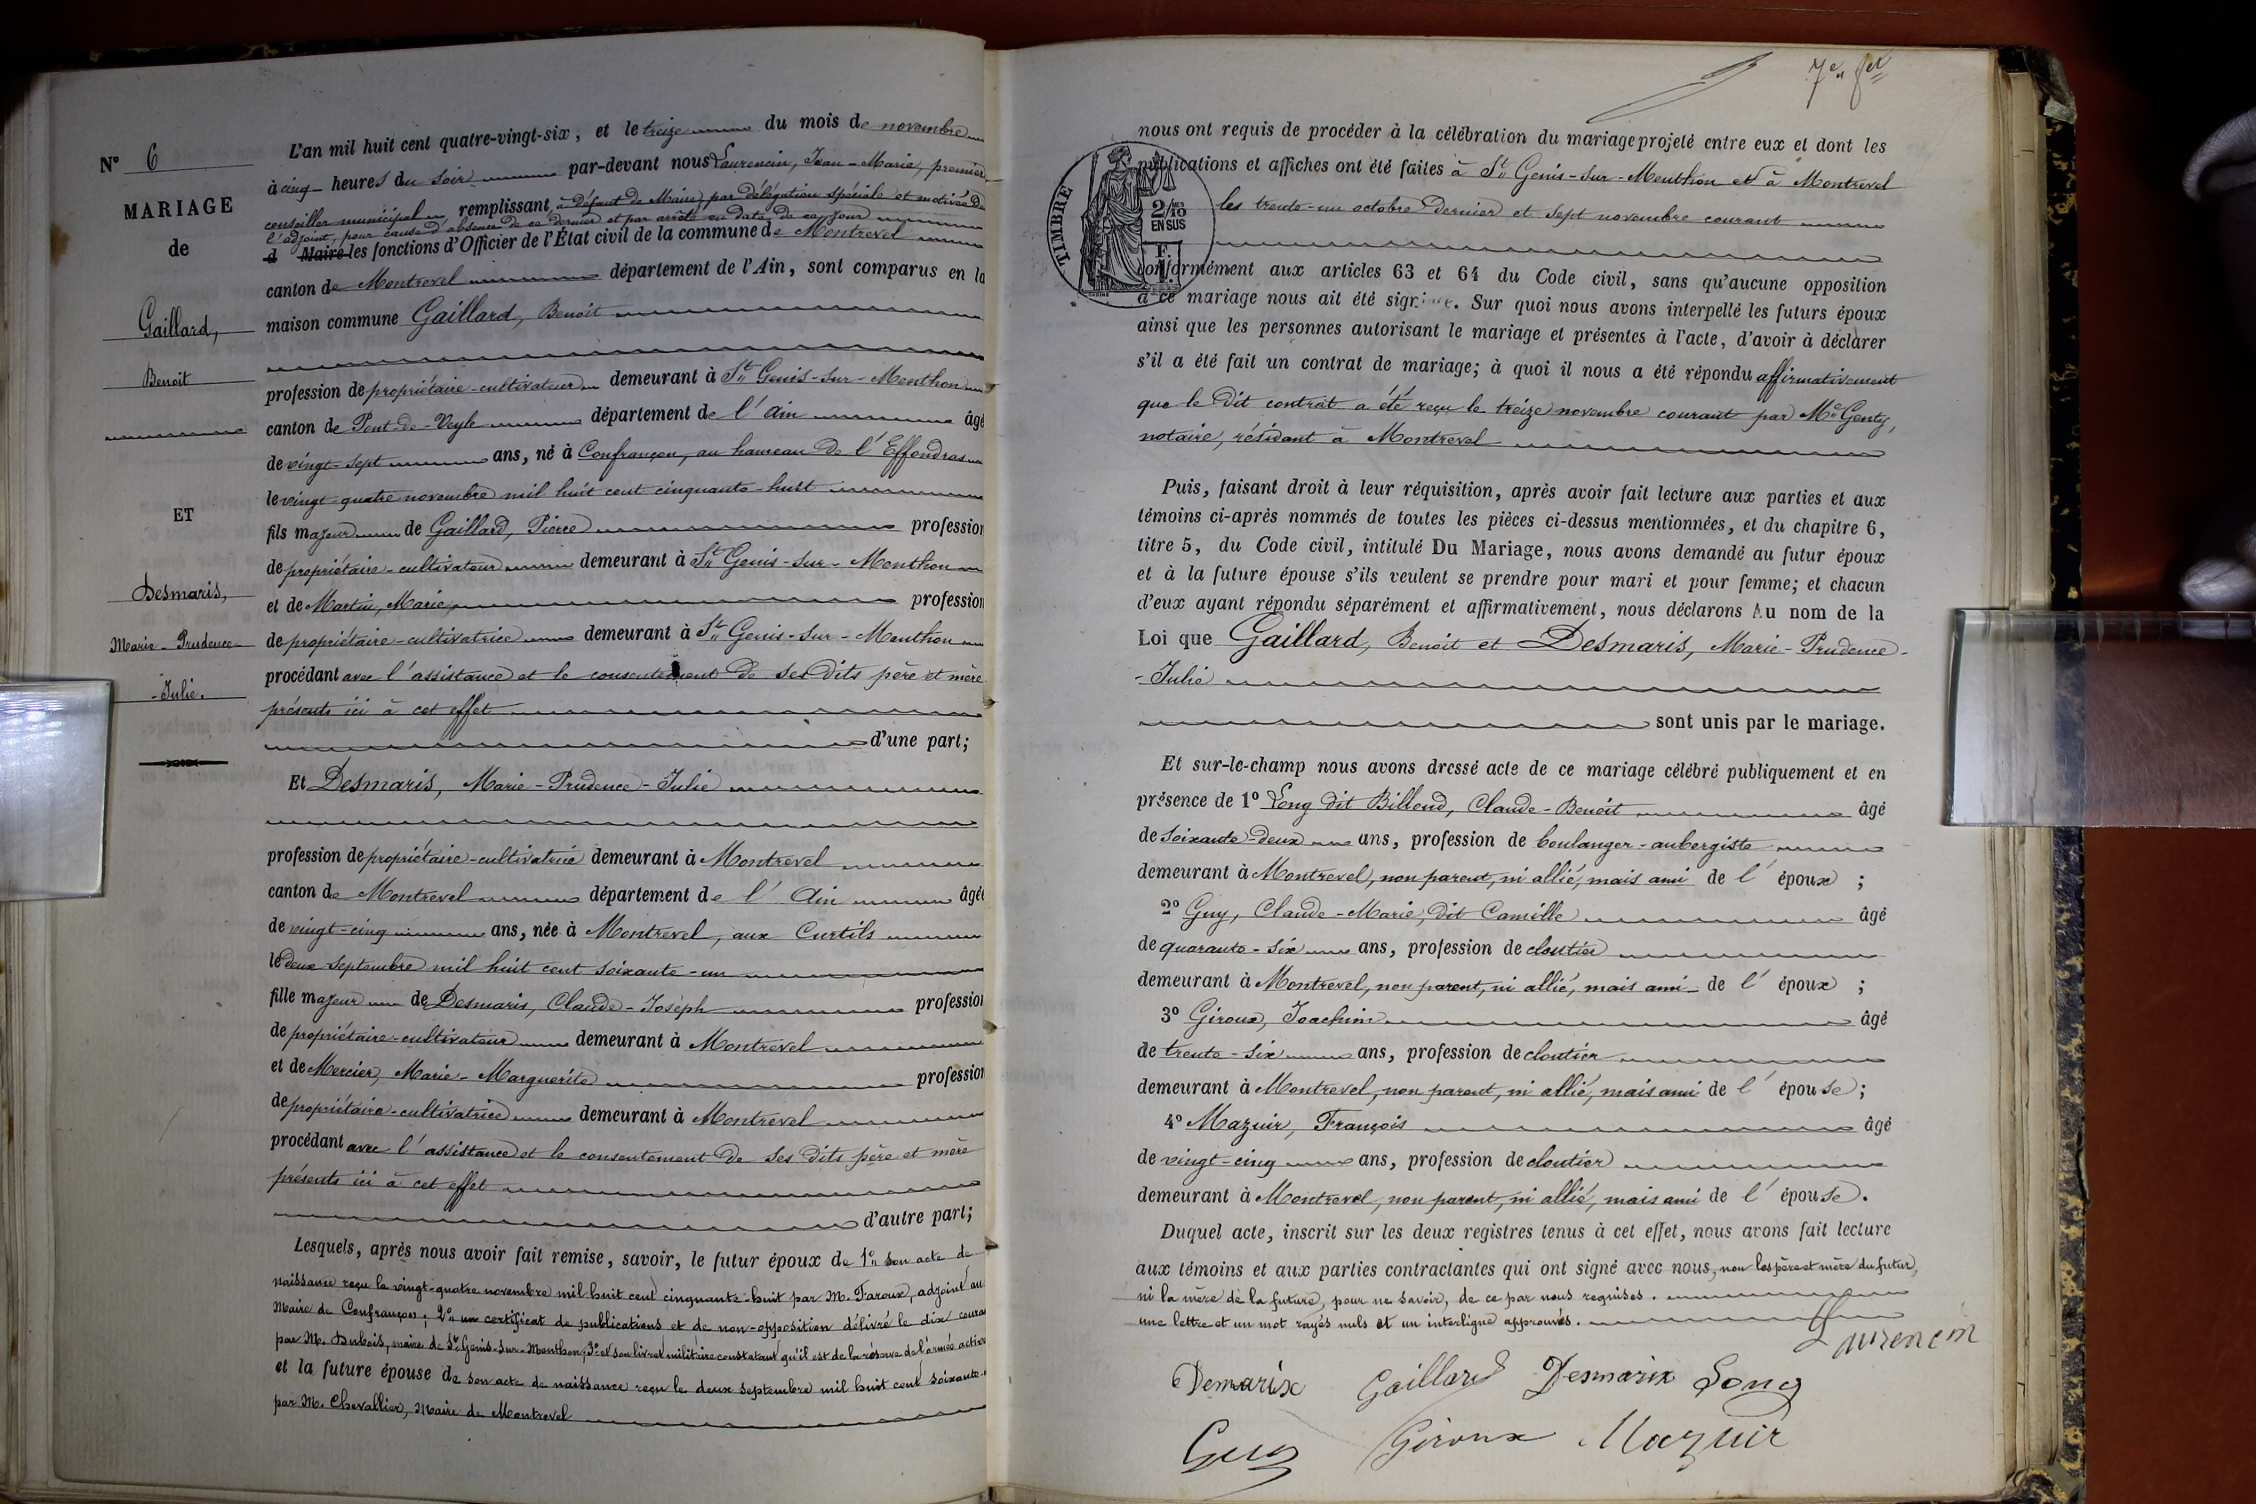 N° 6
MARIAGE
de
Gaillard,
Benoit
ET
Desmaris,
Marie-Prudence-
-Julie.
L'an mil huit cent quatre-vingt-six, et le treize du mois de novembre
à cinq heures du soir par-devant nous Laurencin, Jean-Marie, premier
conseiller municipal remplissant à défaut de Maire, par délégation spéciale et motivée de
l'adjoint, pour cause d'absence de ce dernier et par arrêté en date de ce jour
d Maire les fonctions d'Officier de l'État civil de la commune de Montrevel
canton de Montrevel département de l'Ain, sont comparus en la
maison commune Gaillard, Benoit
profession de propriétaire-cultivateur demeurant à St Genis-sur-Menthon
canton de Pont-de-Veyle département de l'Ain âgé
de vingt-sept ans, né à Confrançon, au hameau de l'Effondras
le vingt-quatre novembre mil huit cent cinquante-huit
fils majeur de Gaillard, Pierre profession
de propriétaire-cultivateur demeurant à St Genis-sur-Menthon
et de Martin, Marie, profession
de propriétaire-cultivatrice demeurant à St Genis-sur-Menthon
procédant avec l'assistance et le consentement de ses dits père et mère
présents ici à cet effet
d'une part;
Et Desmaris, Marie-Prudence-Julie
profession de propriétaire-cultivatrice demeurant à Montrevel
canton de Montrevel département de l'Ain âgée
de vingt-cinq ans, née à Montrevel, aux Curtils
le deux septembre mil huit cent soixante-un
fille majeur de Desmaris, Claude-Joseph profession
de propriétaire-cultivateur demeurant à Montrevel
et de Mercier, Marie-Marguerite profession
de propriétaire-cultivatrice demeurant à Montrevel
procédant avec l'assistance et le consentement de ses dits père et mère
présents ici à cet effet
d'autre part;
Lesquels, après nous avoir fait remise, savoir, le futur époux de 1° son acte de
naissance reçu le vingt-quatre novembre mil huit cent cinquante-huit par M. Faroux, adjoint au
Maire de Confrançon; 2° un certificat de publications et de non-opposition délivré le dix coura
par M. Dubois, maire de St Genis-sur-Menthon; 3° et son livret militaire constatant qu'il est de la réserve de l'armée active
et la future épouse de son acte de naissance reçu le deux septembre mil huit cent soixante-
par M. Chevallier, Maire de Montrevel
7e fet
nous ont requis de procéder à la célébration du mariage projeté entre eux et dont les
publications et affiches ont été faites à St Genis-sur-Menthon et à Montrevel
les trente-un octobre dernier et sept novembre courant
TIMBRE
2/10 MES
EN SUS
conformément aux articles 63 et 64 du Code civil, sans qu'aucune opposition
à ce mariage nous ait été signifiée. Sur quoi nous avons interpellé les futurs époux
ainsi que les personnes autorisant le mariage et présentes à l'acte, d'avoir à déclarer
s'il a été fait un contrat de mariage; à quoi il nous a été répondu affirmativement
que le dit contrat a été reçu le treize novembre courant par Me Genty,
notaire, résidant à Montrevel
Puis, faisant droit à leur réquisition, après avoir fait lecture aux parties et aux
témoins ci-après nommés de toutes les pièces ci-dessus mentionnées, et du chapitre 6,
titre 5, du Code civil, intitulé Du Mariage, nous avons demandé au futur époux
et à la future épouse s'ils veulent se prendre pour mari et pour femme; et chacun
d'eux ayant répondu séparément et affirmativement, nous déclarons Au nom de la
Loi que Gaillard, Benoit et Desmaris, Marie-Prudence-
-Julie
sont unis par le mariage.
Et sur-le-champ nous avons dressé acte de ce mariage célébré publiquement et en
présence de 1° Long dit Billend, Claude-Benoit âgé
de soixante-deux ans, profession de boulanger-aubergiste
demeurant à Montrevel, non parent, ni allié, mais ami de l'époux;
2° Guy, Claude-Marie, dit Camille âgé
de quarante-six ans, profession de cloutier
demeurant à Montrevel, non parent, ni allié, mais ami de l'époux;
3° Giroux, Joachim âgé
de trente-six ans, profession de cloutier
demeurant à Montrevel, non parent, ni allié, mais ami de l'épouse;
4° Mazuir, François âgé
de vingt-cinq ans, profession de cloutier
demeurant à Montrevel, non parent, ni allié, mais ami de l'épouse.
Duquel acte, inscrit sur les deux registres tenus à cet effet, nous avons fait lecture
aux témoins et aux parties contractantes qui ont signé avec nous, non les père et mère du futur,
ni la mère de la future, pour ne savoir, de ce par nous requises.
une lettre et un mot rayés nuls et un interligne approuvés.
Laurencin
Demarix Gaillard Desmarix Long
Guy Giroux Mazuir